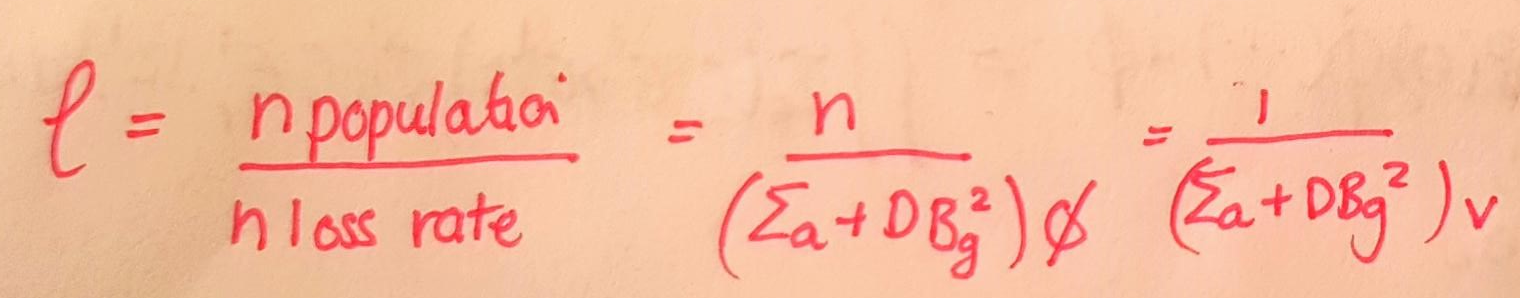 ℓ = n population / n loss rate = n / (Σa + DBg²)φ = 1 / (Σa + DBg²)v